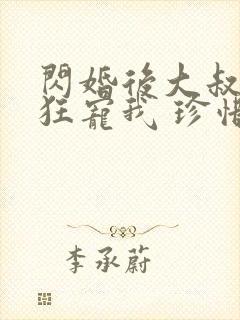 閃婚後大叔
狂寵我 珍惜
李承蔚